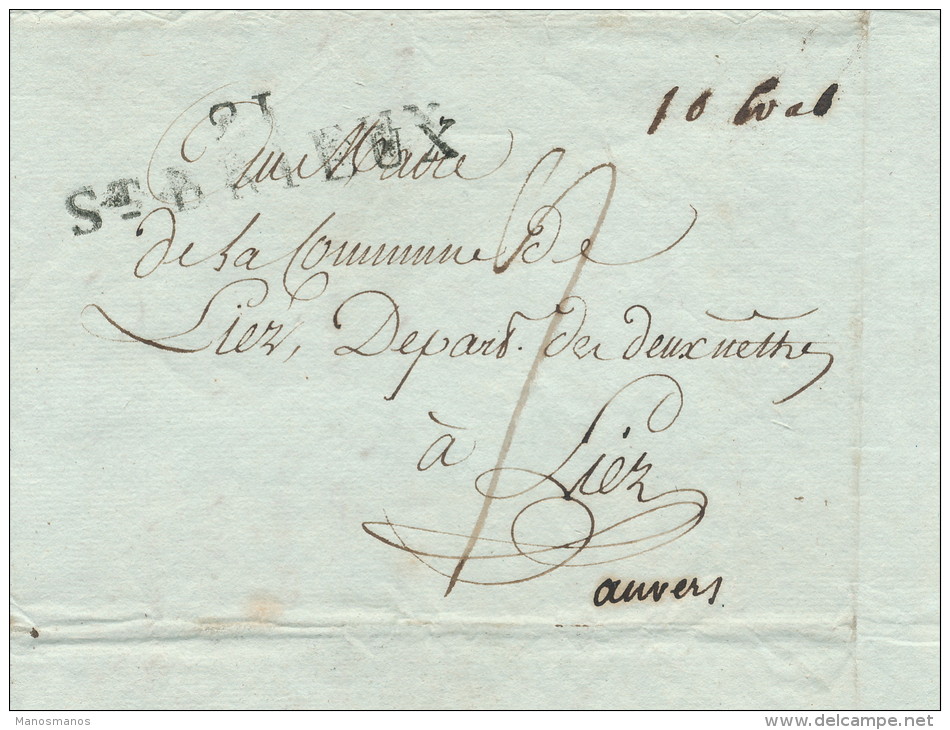 21
ST BRIEUX
Au Maire
de la Commune De
Lier, Depart. des deux nethes
à Lier
anvers
Manosmanos
www.delcampe.net